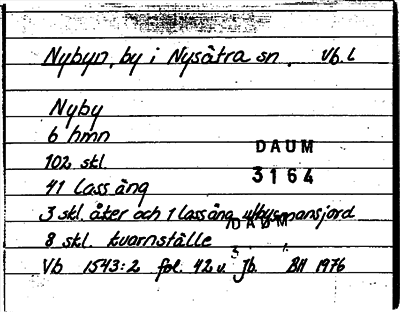 Nybyn, by i Nysätra sn. Vb. l
Nyby
6 hmn
102 skl.
DAUM
3164
41 lass äng
3 skl. åker och 1 lass äng utbysmansjord
DAUM
8 skl. kvarnställe
Vb 1543:2 fol. 42 v. Jb. BH 1976